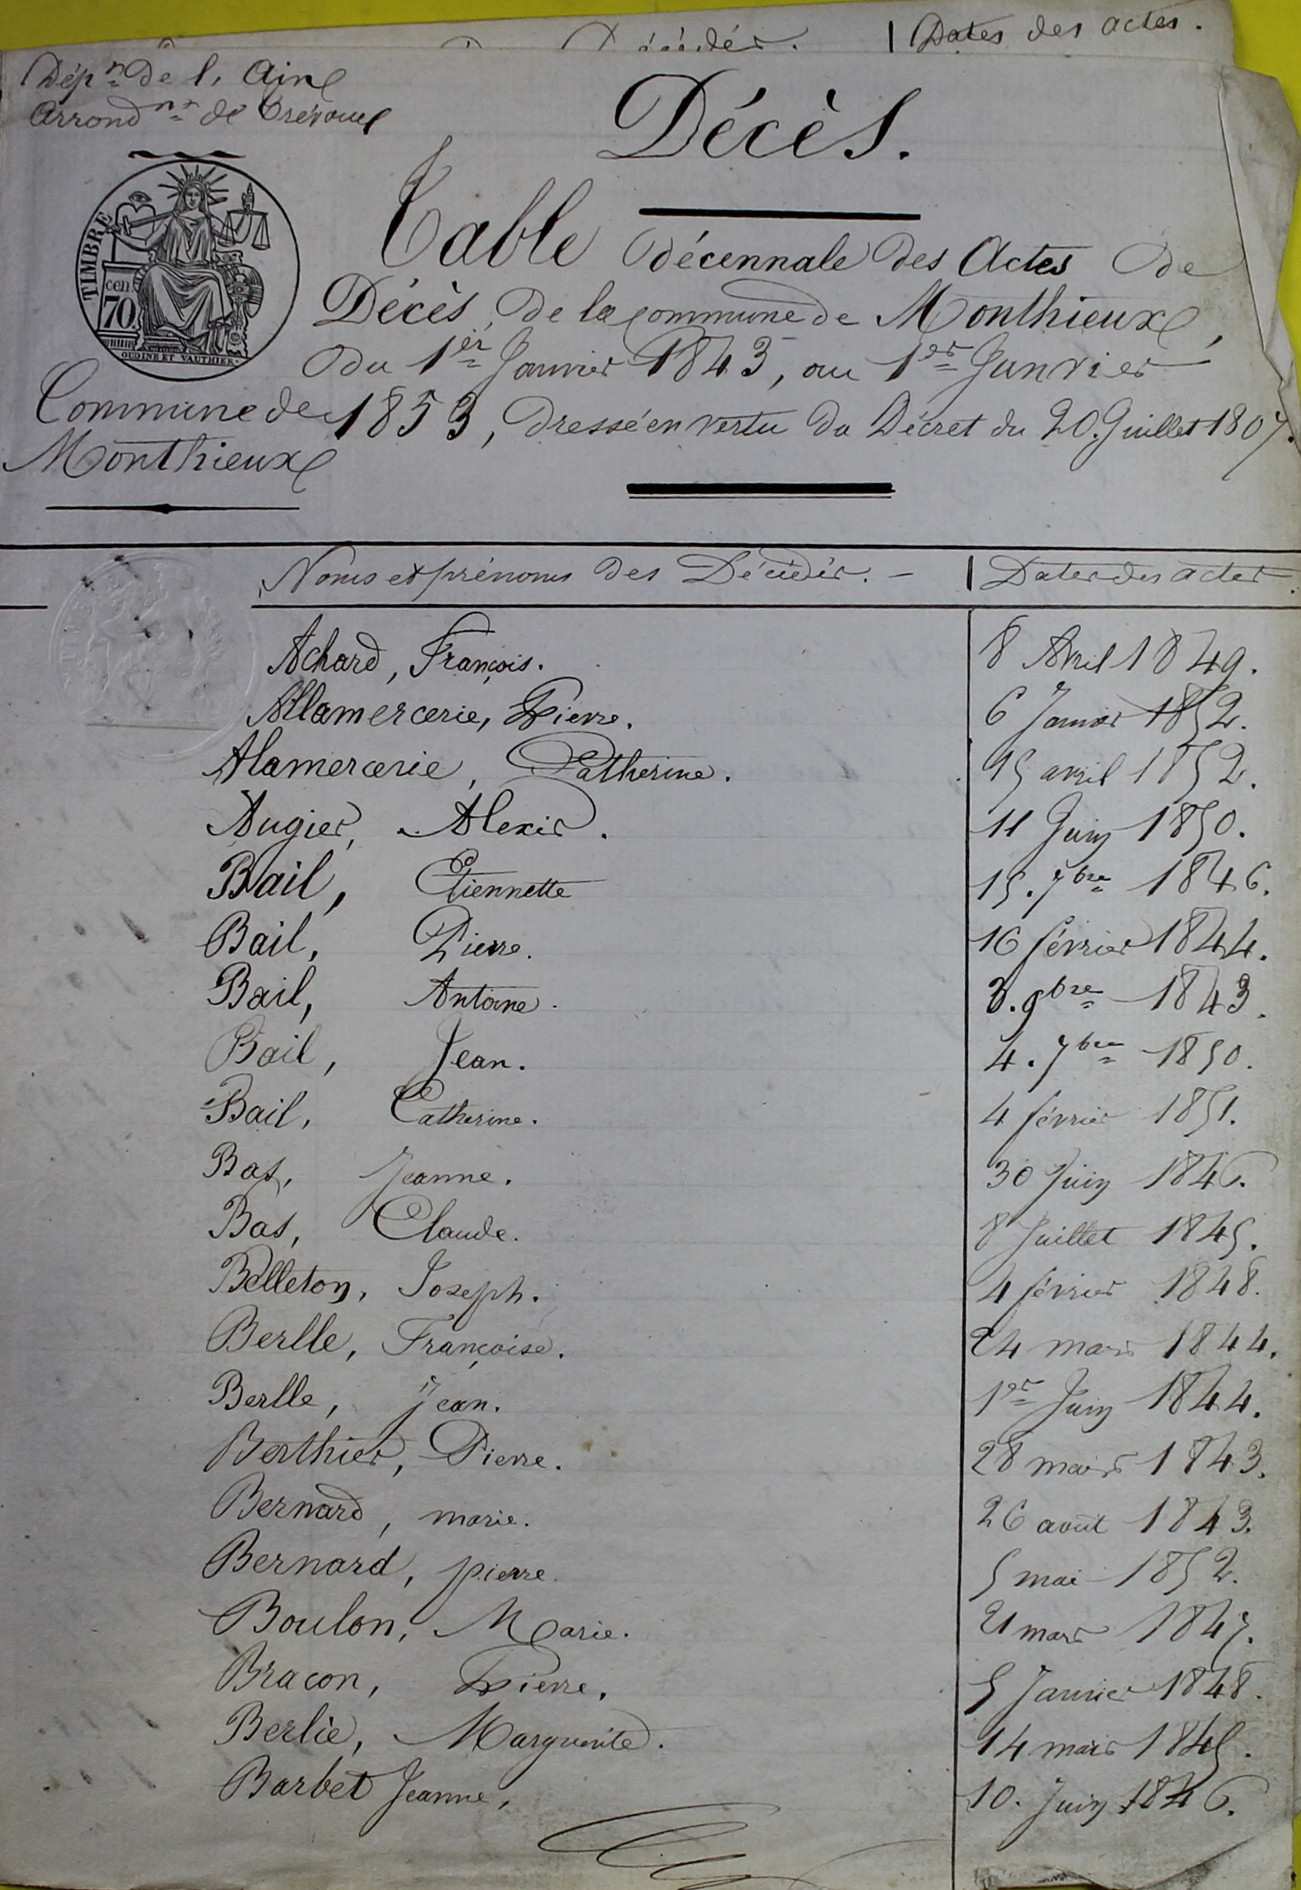 Dates des actes.
Dép.nt de l'Ain
Arrond.nt de Trévoux
Décès.
TIMBRE
cen
70
OUDINÉ ET VAUTHIER
Table décennale des Actes de
Décès, de la commune de Monthieux,
du 1er Janvier 1843, au 1er Janvier
Commune de
Monthieux
1853, dressé en vertu du Décret du 20. Juillet 1807.
Noms et prénoms des Décédés. — | Dates des actes.
Achard, François. 8 Avril 1849.
Allamercerie, Pierre. 6 Janvier 1852.
Alamercerie, Catherine. 15 avril 1852.
Augier, Alexis. 11 Juin 1850.
Bail, Etiennette 15. 7bre 1846.
Bail, Pierre. 16 février 1844.
Bail, Antoine. 3. 9bre 1843.
Bail, Jean. 4. 7bre 1850.
Bail, Catherine. 4 février 1851.
Bas, Jeanne. 30 Juin 1846.
Bas, Claude. 8 Juillet 1845.
Belleton, Joseph. 4 février 1848.
Berlle, Françoise. 24 mars 1844.
Berlle, Jean. 1er Juin 1844.
Berthier, Pierre. 28 mars 1843.
Bernard, marie. 26 août 1843.
Bernard, pierre. 5 mai 1852.
Boulon, Marie. 21 mars 1847.
Bracon, Pierre. 5 Janvier 1848.
Berlie, Marguerite. 14 mars 1845.
Barbet Jeanne, 10. Juin 1846.